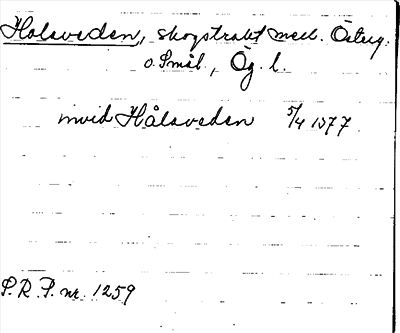 Holaveden, skogstrakt mell. Östeg.
o. Smål., Ög. l.
invid Hålaveden 5/4 1377
S.R.P. nr. 1259